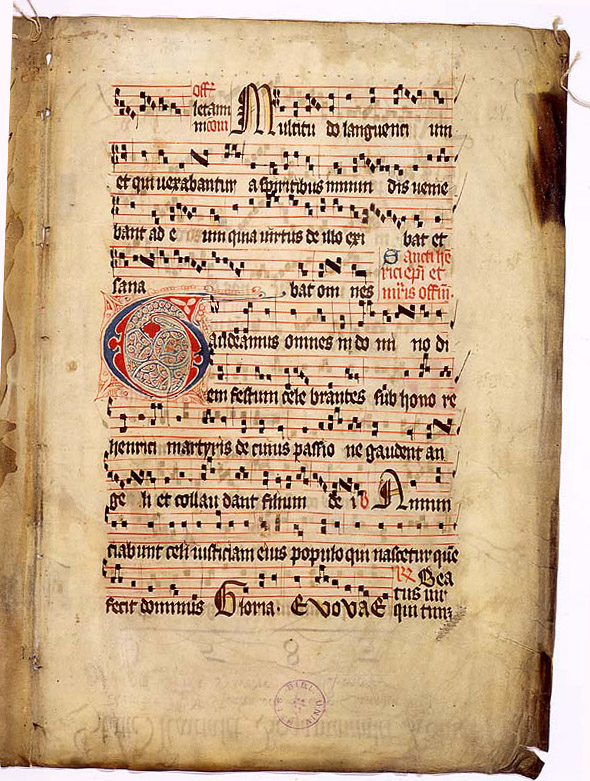 Off
letam
Multitu do languenti um
et qui uexabantur a spiritibus inmun dis uenie
bant ad e um quia uirtus de illo exi bat et
sana bat om nes
Sancti he
rici epi et
mris offm.
Gaudeamus omnes in do mi no di
em festum cele brantes sub hono re
henrici martyris de cuius passio ne gaudent an
ge li et collau dant filium de i Annun
ciabunt celi iusticiam eius populo qui nascetur que
fecit dominus Gloria. EVOVAE
Bea
tus uir
qui tim